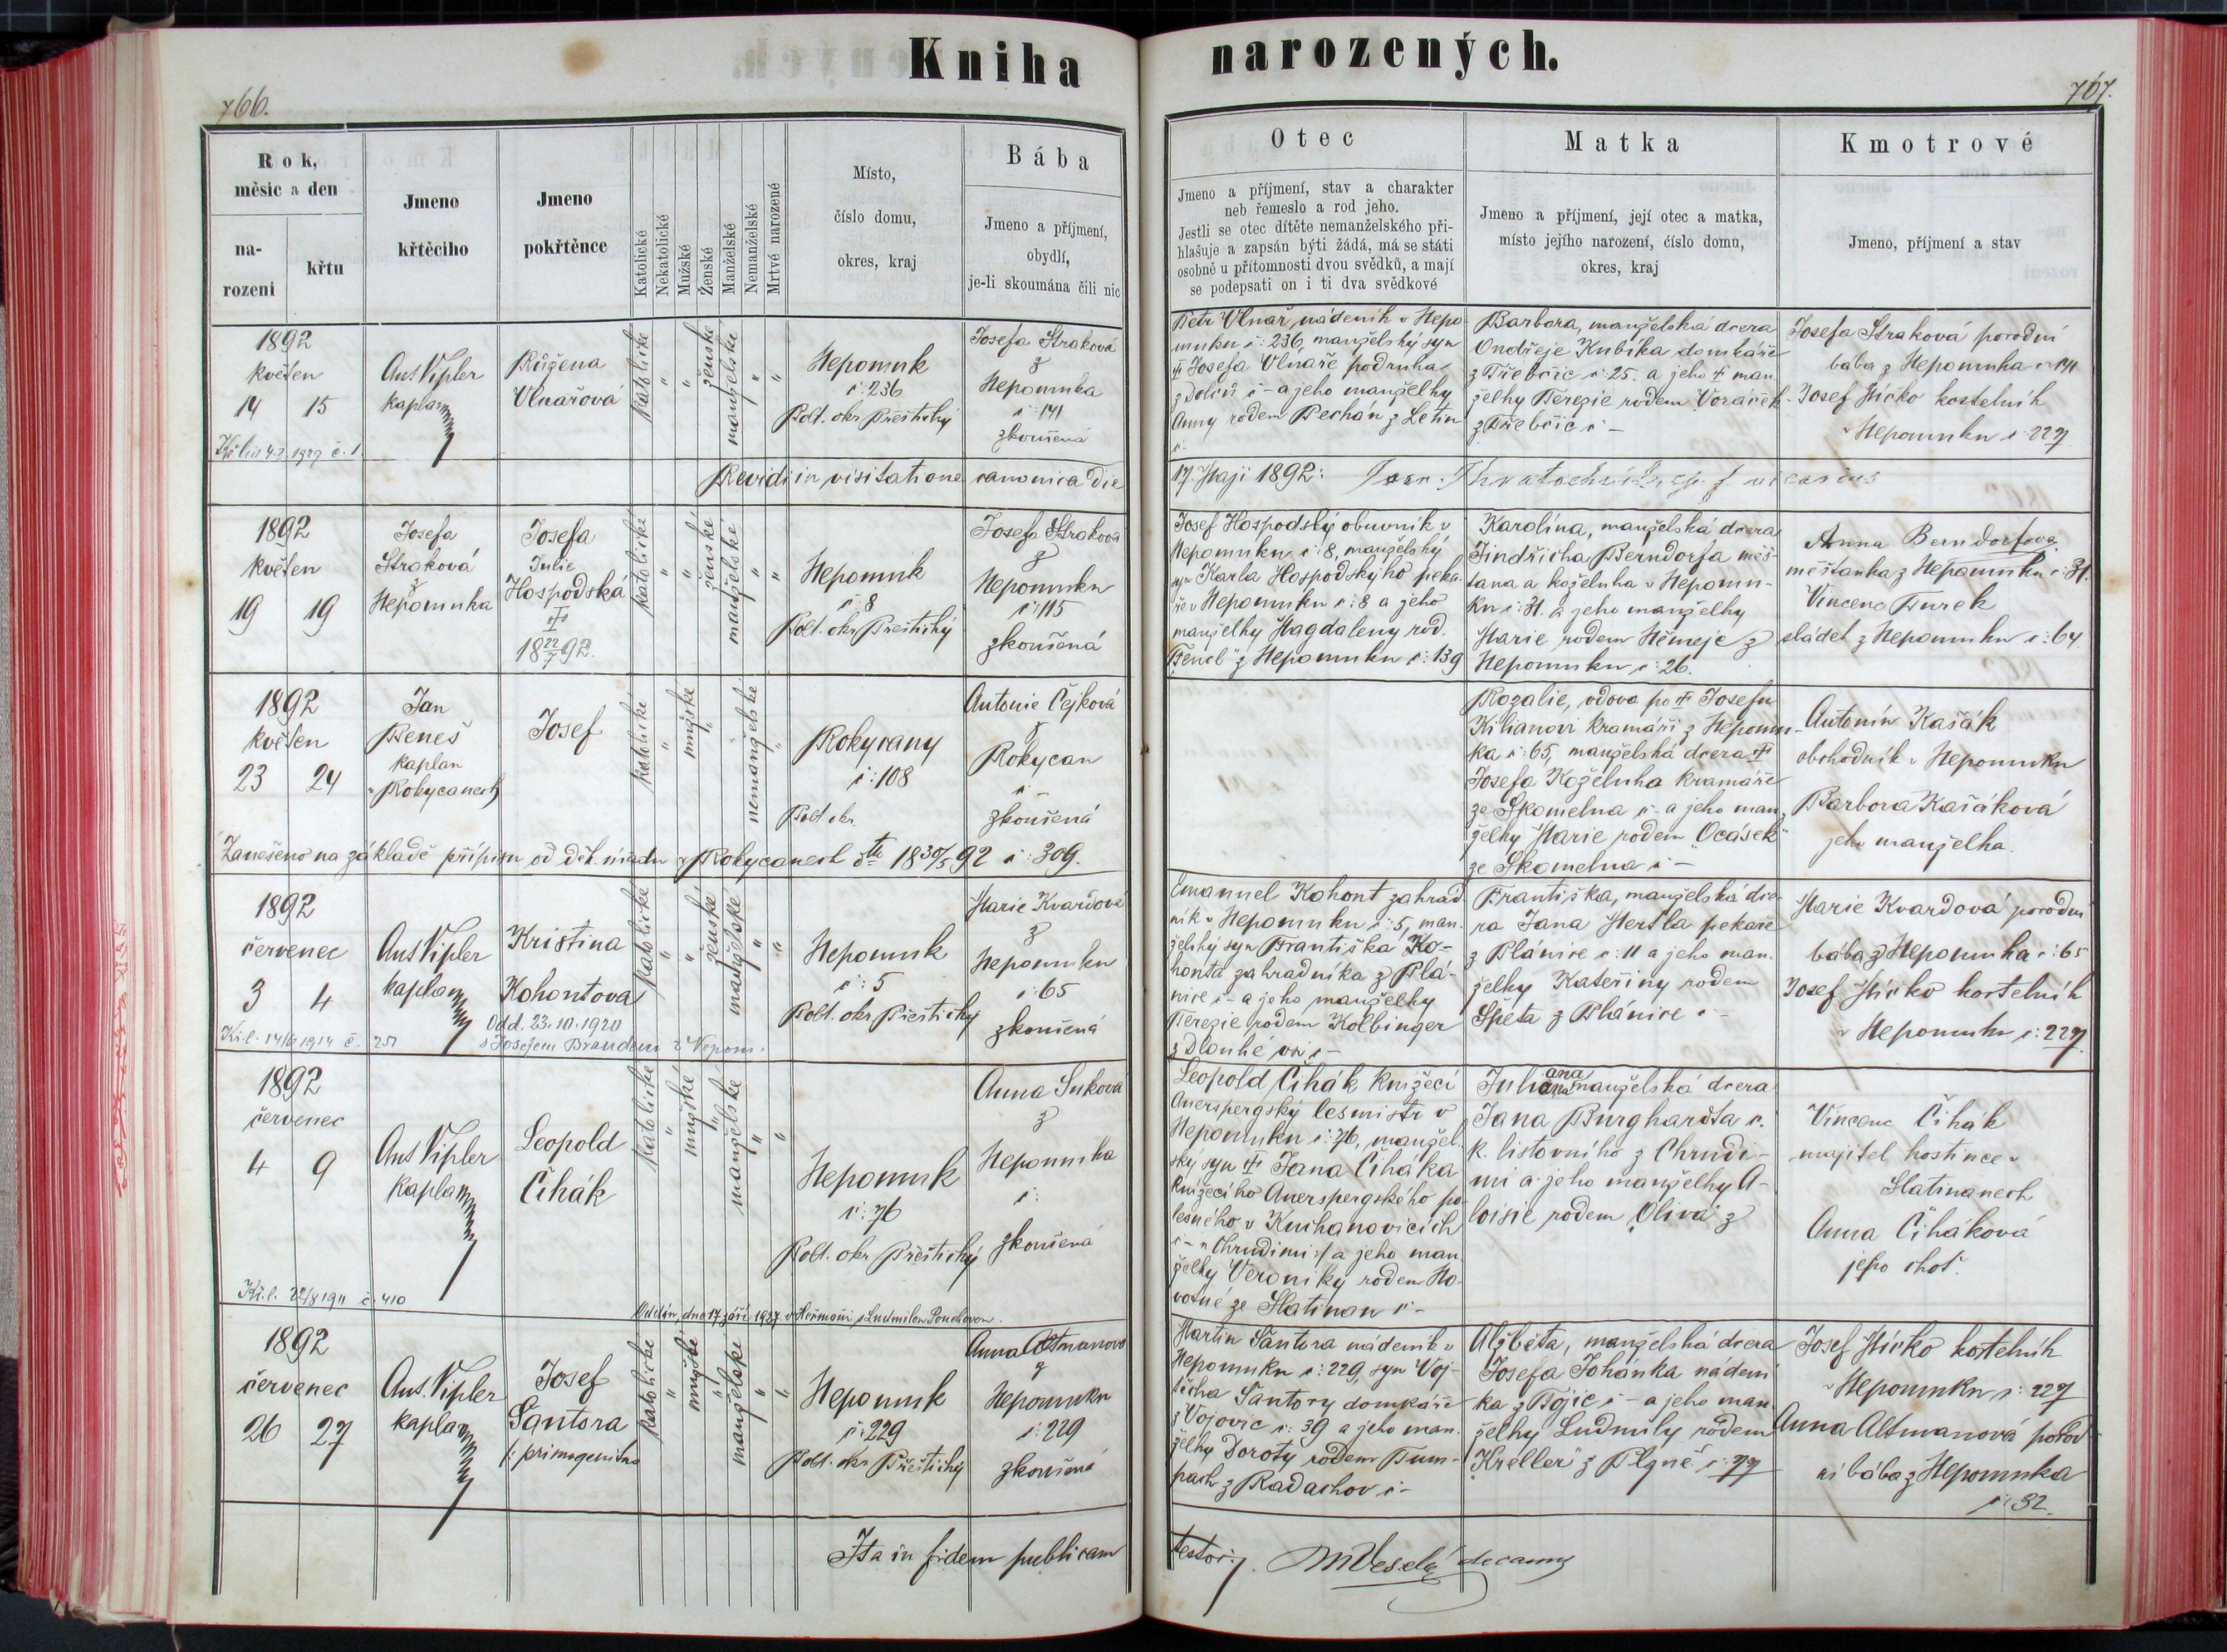 Kniha
narozených.
766.
767.
Rok,
měsíc a den
na-
rození
křtu
Jmeno
křtěcího
Jmeno
pokřtěnce
Katolické
Nekatolické
Mužské
Ženské
Manželské
Nemanželské
Mrtvé narozené
Místo,
číslo domu,
okres, kraj
Bába
Jmeno a příjmení,
obydlí,
je-li skoumána čili nic
Otec
Jmeno a příjmení, stav a charakter
neb řemeslo a rod jeho.
Jestli se otec dítěte nemanželského při-
hlašuje a zapsán býti žádá, má se státi
osobně u přítomnosti dvou svědků, a mají
se podepsati on i ti dva svědkové
Matka
Jmeno a příjmení, její otec a matka,
místo jejího narození, číslo domu,
okres, kraj
Kmotrové
Jmeno, příjmení a stav
1892
květen
14 15
Ant Vipler
kaplan
Růžena
Vlnařová
katolické
"
"
ženské
manželské
"
"
Nepomuk
č: 236
Polt. okr Přeštický
Josefa Straková
z
Nepomuka
č: 141
zkoušená
Petr Vlnař, nádeník v Nepo-
muku č: 236, manželský syn
† Josefa Vlnaře podruha
z Dolců č - a jeho manželky
Anny rodem Pechán z Letin
č -
Barbora, manželská dcera
Ondřeje Kubíka domkáře
z Třebčic č: 25. a jeho † man
želky Terezie rodem Voráček
z Třebčic č -
Josefa Straková porodní
bába z Nepomuka č: 141
Josef Mícko kostelník
v Nepomuku č: 227
Revidi in visitatione canonica die
17. Maji 1892:
1892
květen
19 19
Josefa
Straková
z
Nepomuka
Josefa
Julie
Hospodská
†
18 22/7 92.
katolické
"
"
ženské
manželské
"
"
Nepomuk
č: 8
Polt. okr Přeštický
Josefa Straková
z
Nepomuku
č: 115
zkoušená
Josef Hospodský obuvník v
Nepomuku č: 8, manželský
syn Karla Hospodského peka-
ře v Nepomuku č: 8 a jeho
manželky Magdaleny rod.
"Fencl" z Nepomuku č: 139
Karolína, manželská dcera
Jindřicha Berndorfa měš-
ťana a koželuha v Nepomu-
ku č: 31. a jeho manželky
Marie rodem Němeje z
Nepomuku č: 26.
Anna Berndorfova
měštanka z Nepomuku č: 31.
Vincenc Turek
sládek z Nepomuku č: 64.
1892
květen
23 24
Jan
Beneš
kaplan
v Rokycanech
Josef
katolické
"
mužské
"
nemanželské
"
Rokycany
č: 108
Polt okr
Antonie Čejková
z
Rokycan
č: -
zkoušená
Rozalie, vdova po † Josefu
Kilianovi kramáři z Nepomu-
ka č: 65, manželská dcera †
Josefa Koželuha kramáře
ze Skomelna č - a jeho man-
želky Marie rodem "Ocásek"
ze Skomelna č -
Antonín Kašák
obchodník v Nepomuku
Barbora Kašáková
jeho manželka.
Zanešeno na základě přípisu od děk. úřadu v Rokycanech dto 18 30/5 92 č: 309.
1892
červenec
3 4
Ant Vipler
kaplan
Kristina
Kohontova
Odd. 23.10.1920
s Josefem Brandem z Nepom.
katolické
"
"
ženské
manželské
"
"
Nepomuk
č: 5
Polt. okr Přeštický
Marie Kvardová
z
Nepomuku
č: 65
zkoušená
Emanuel Kohont zahrad-
ník v Nepomuku č: 5, man-
želský syn Františka Ko-
honta zahradníka z Plá-
nice č - a jeho manželky
Terezie rodem Kolbinger
z Dlouhé vsi č -
Františka, manželská dce-
ra Jana Hertla pekaře
z Plánice č: 11 a jeho man-
želky Kateřiny rodem
Špeta z Plánice č -
Marie Kvardová porodní
bába z Nepomuka č: 65
Josef Mícko kostelník
v Nepomuku č: 227.
1892
červenec
4 9
Ant Vipler
kaplan
Leopold
Čihák
katolické
"
mužské
"
manželské
"
"
Nepomuk
č: 76
Polt. okr Přeštický
Anna Suková
z
Nepomuka
č:
zkoušená
Leopold Čihák knížecí
Auerspergský lesmistr v
Nepomuku č: 76, manžel-
ský syn † Jana Čiháka
knížecího Auerspergského po-
lesného v Kuchanovicích
č - v Chrudimi :/ a jeho man
želky Veroniky rodem No-
votné ze Slatinan č -
Juliana manželská dcera
Jana Burghardta c.
k. listovního z Chrudi-
mi a jeho manželky A-
loisie rodem Oliva z
Vincenc Čihák
majitel hostince v
Slatinanech
Anna Čiháková
jeho choť.
Kř. l. 22/8 1911 č. 410
Oddán dne 17 září 1927 v Heřmani s Ludmilou Pouchovou.
1892
červenec
26 27
Ant. Vipler
kaplan
Josef
Šantora
/: primogenitus
katolické
"
mužské
"
manželské
"
"
Nepomuk
č: 229
Polt. okr Přeštický
Anna Altmanova
z
Nepomuku
č: 229
zkoušená
Martin Šantora nádeník v
Nepomuku č: 229, syn Voj-
těcha Šantory domkáře
z Vojovic č: 39 a jeho man-
želky Doroty rodem Tum-
pach z Radachov č -
Alžběta, manželská dcera
Josefa Johánka nádení
ka z Tojic č - a jeho man
želky Ludmily rodem
"Kreller" z Plzně č: 77
Josef Mícko kostelník
v Nepomuku č: 227
Anna Altmanová porod-
ní bába z Nepomuka
č: 32.
Ita in fidem publicam
testor:
MVeselý decanus